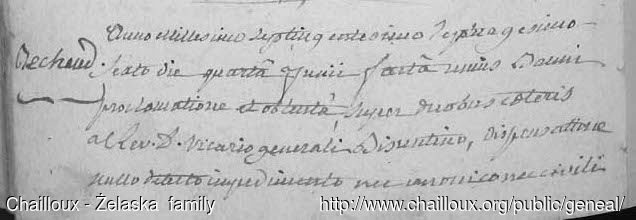 Anno millesimo septingentesimo septuagesimo
Bechaud. sexto die quartâ Junii factâ unius Banni
proclamatione et obtentâ, super duobus ceteris
a Rev. D. Vicario generali Bisuntino, dispensatione
nullo detecto impedimento nec canonico nec civili
Chailloux - Żelaska family http://www.chailloux.org/public/geneal/